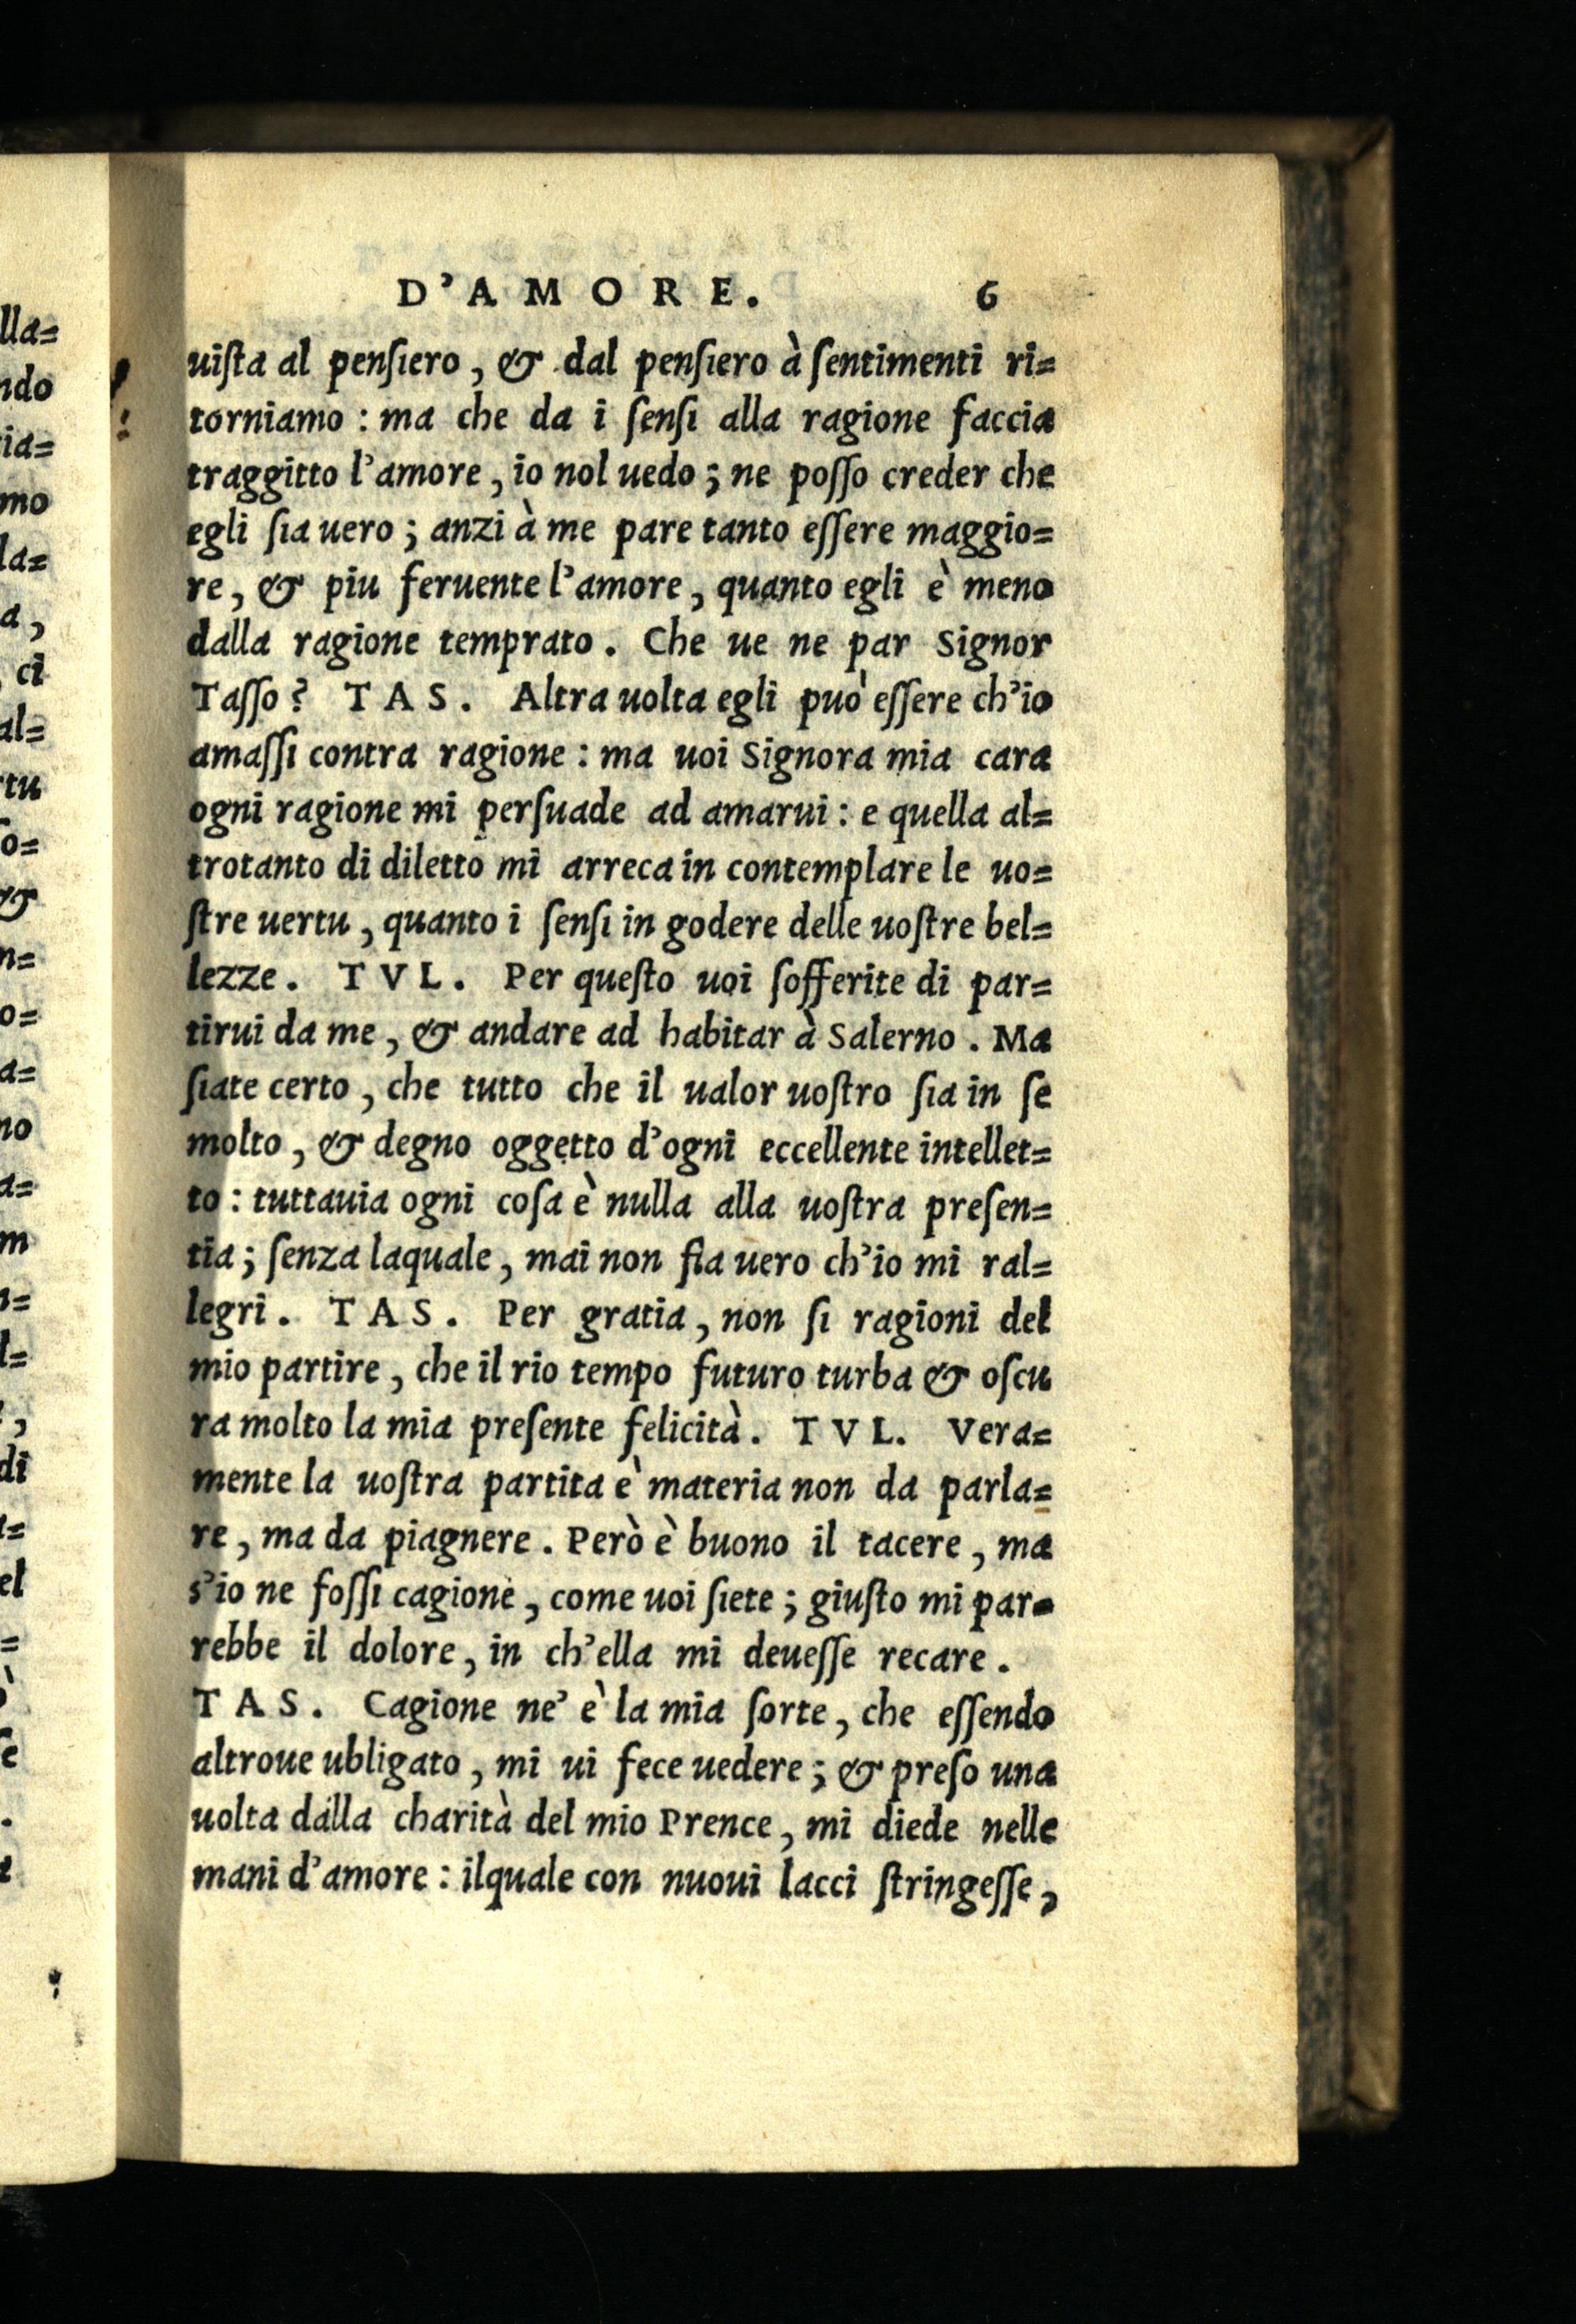 D'AMORE. 6
uiſta al penſiero, & dal penſiero à ſentimenti ri=
torniamo : ma che da i ſenſi alla ragione faccia
traggitto l'amore, io nol uedo; ne poſſo creder che
egli ſia uero; anzi à me pare tanto eſſere maggio=
re, & piu feruente l'amore, quanto egli è meno
dalla ragione temprato. Che ue ne par Signor
Taſſo? TAS. Altra uolta egli può eſſere ch'io
amaſſi contra ragione : ma uoi Signora mia cara
ogni ragione mi perſuade ad amarui : e quella al=
trotanto di diletto mi arreca in contemplare le uo=
ſtre uertu, quanto i ſenſi in godere delle uoſtre bel=
lezze. TVL. Per queſto uoi ſofferite di par=
tirui da me, & andare ad habitar à Salerno. Ma
ſiate certo, che tutto che il ualor uoſtro ſia in ſe
molto, & degno oggetto d'ogni eccellente intellet=
to : tuttauia ogni coſa è nulla alla uoſtra preſen=
tia; ſenza laquale, mai non fia uero ch'io mi ral=
legri. TAS. Per gratia, non ſi ragioni del
mio partire, che il rio tempo futuro turba & oſcu
ra molto la mia preſente felicità. TVL. Vera=
mente la uoſtra partita è materia non da parla=
re, ma da piagnere. Però è buono il tacere, ma
s'io ne foſſi cagione, come uoi ſiete; giuſto mi par=
rebbe il dolore, in ch'ella mi deueſſe recare.
TAS. Cagione ne' è la mia ſorte, che eſſendo
altroue ubligato, mi ui fece uedere; & preſo una
uolta dalla charità del mio Prence, mi diede nelle
mani d'amore : ilquale con nuoui lacci ſtringeſſe,